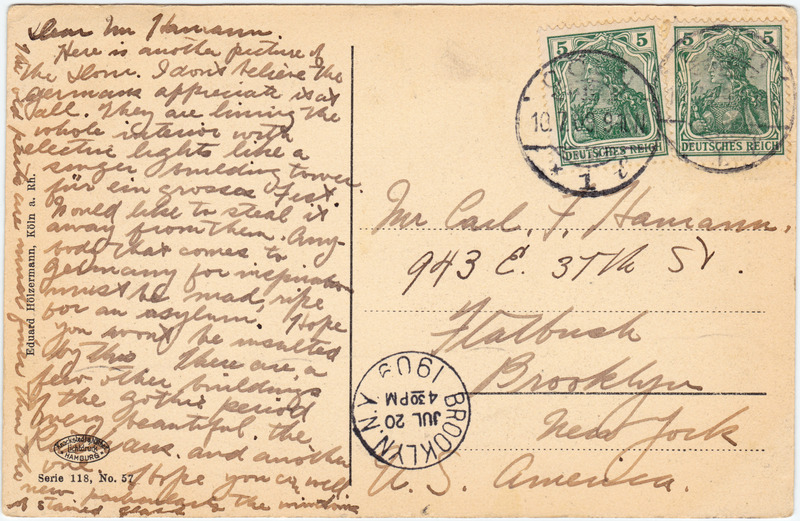 Dear Mr Hamann.
Here is another picture of
the Dom. I don't believe the
germans appreciate it at
all. They are lining the
whole interior with
electric lights like a
singer building tower.
für ein grosses Fest.
Would like to steal it
away from them. Any-
body that comes to
Germany for inspiration
must be mad, ripe
for an asylum. Hope
you won't be insulted
by this. There are a
few other buildings
of the gothic period
very beautiful, the
and another
one. Hope you are well
new the windows
of stained glass
Eduard Hölzermann, Köln a. Rh.
HAMBURG
Serie 118, No. 57
5 5
DEUTSCHES REICH
5 5
DEUTSCHES REICH
10.7.09.9-10.N
* 1 t
Mr Carl. F. Hamann.
943 E. 37th St.
Flatbush
Brooklyn
New York
U. S. America.
BROOKLYN N.Y.
JUL 20
430PM
1909